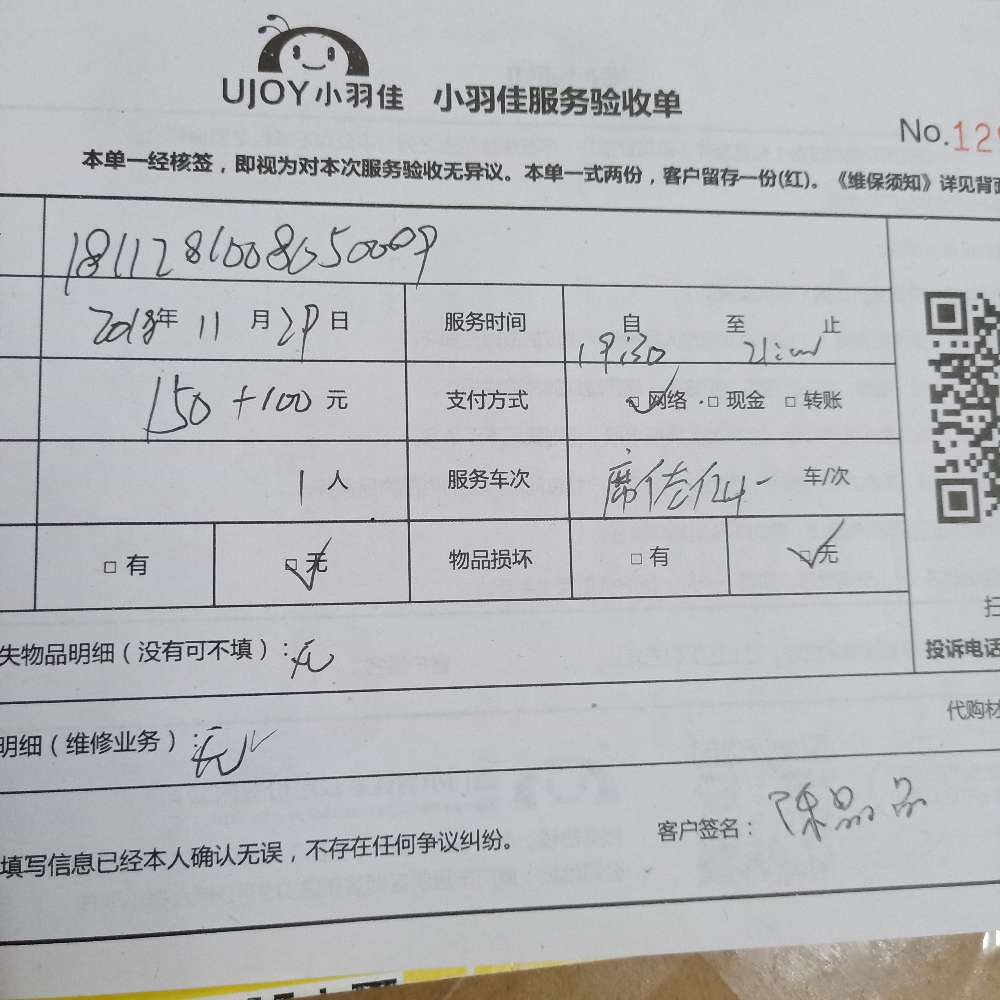 UJOY小羽佳 小羽佳服务验收单
No.129
本单一经核签，即视为对本次服务验收无异议。本单一式两份，客户留存一份(红)。《维保须知》详见背面
1811281008050009
2018年 11 月 29 日 服务时间 自 至 止
19:30
150+100 元 支付方式 □ 网络 □ 现金 □ 转账
1 人 服务车次 车/次
□ 有 □ 无 物品损坏 □ 有 □ 无
扫
失物品明细（没有可不填）：无
投诉电话
代购材
明细（维修业务）：无
填写信息已经本人确认无误，不存在任何争议纠纷。 客户签名： 陈